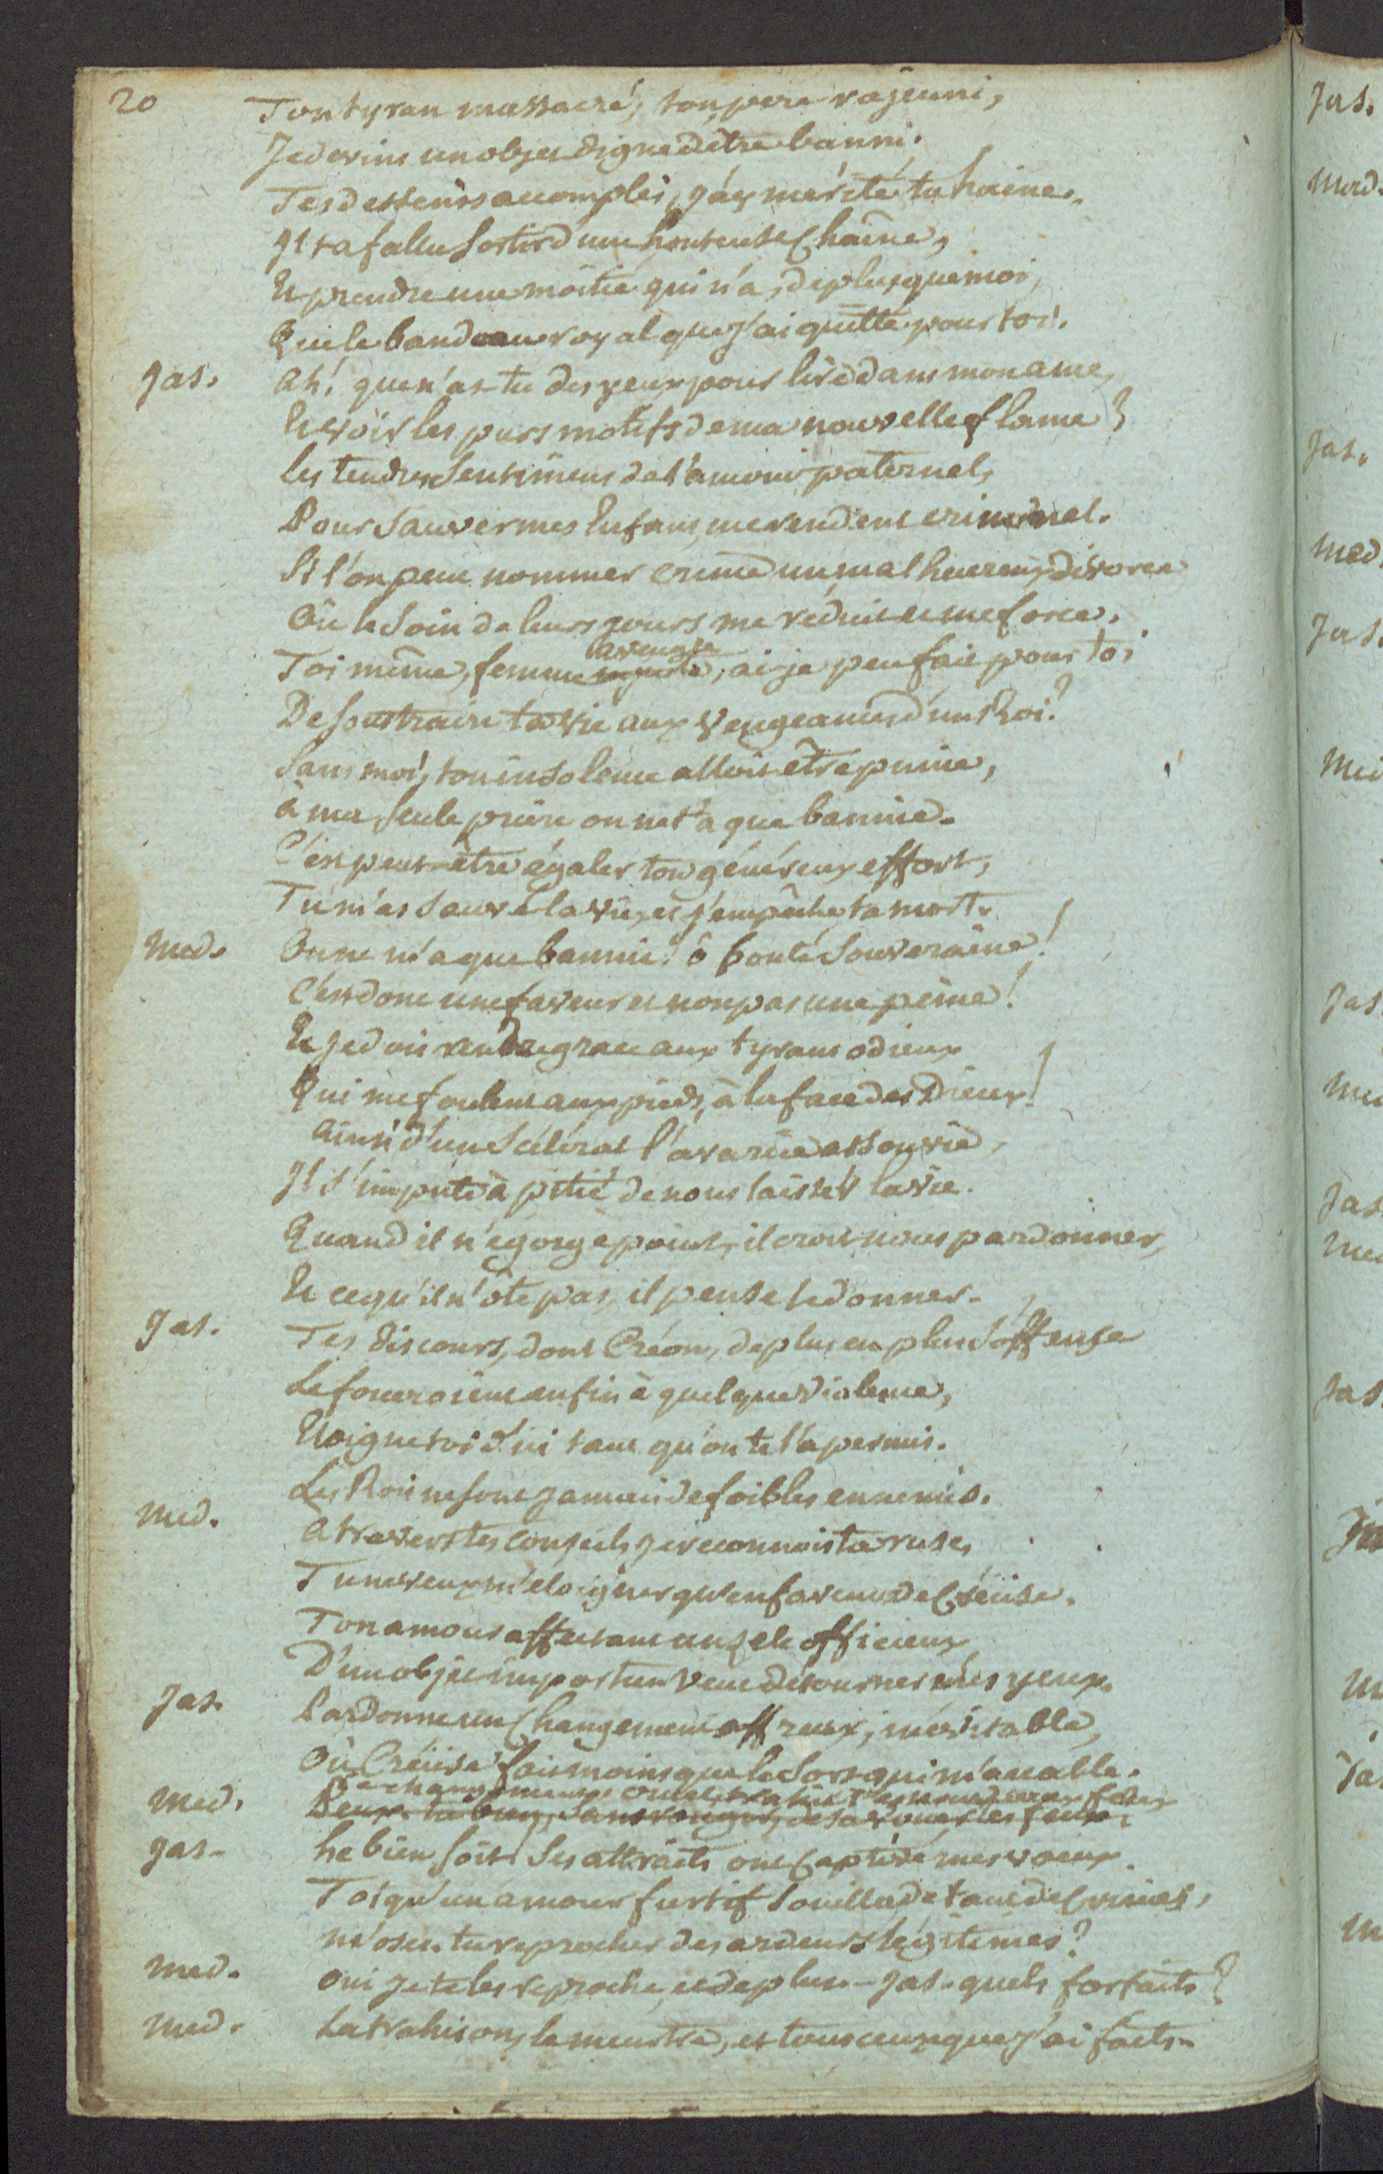 20 Ton tyran massacré, ton pere rajeuni,
Je devins un objet digne d'être banni.
Tes desseins accomplis, j'ay mérité ta haine.
Il t'a fallu sortir d'une honteuse Chaîne,
Et prendre une moitié qui n'a, de plus que moi,
Que le bandeau royal que j'ai quitté pour toi.
Jas. Ah! que n'as-tu des yeux pour lire dans mon ame,
Et voir les purs motifs de ma nouvelle flame?
les tendres Sentimens de l'amour paternel,
Pour Sauver mes Enfans, me rendent criminel.
Si l'on peut nommer crime un malheureux divorce
Où le Soin de leurs jours me réduit et me force.
Toi même, femme aveugle, ai je peu fait pour toi
De soustraire ta vie aux vengeances d'un Roi?
Sans moi, ton insolence alloit être punie,
à ma Seule priere on ne t'a que bannie.
C'est peut-être égaler ton généreux effort,
Tu m'as Sauvé la vie, et j'empêche ta mort.
Med. On ne m'a que bannie! ô bonté Souveraine!
C'est donc une faveur et non pas une peine!
Et je dois rendre grace aux tyrans odieux
Qui me foulent aux pieds, à la face des Dieux!
Ainsi d'un Scélérat l'avarice assouvie,
Il s'impute à pitié de nous laisser la vie.
Quand il n'égorge point, il croit nous pardonner,
Et ce qu'il n'ôte pas, il pense le donner.
Jas. Tes discours, dont Créon, de plus en plus S'offense
Le forceroient enfin à quelque violence,
Eloigne toi d'ici tant qu'on te l'a permis.
Les Rois ne sont jamais de foibles ennemis.
Med. A travers tes conseils je reconnois ta ruse,
Tu ne veux m'éloigner qu'en faveur de Créüse.
Ton amour affectant un zele officieux
D'un objet importun veut détourner mes yeux.
Jas. Pardonne un Changement affreux, inévitable,
Où Créüse fait moins que le Sort qui m'accable.
Med. Peux-tu bien, Sans rougir, désavouer tes feux?
Jas. hé bien soit! Ses attraits ont Captivé mes voeux.
Toi qu'un amour furtif Souilla de tant de Crimes,
m'oses-tu reprocher des ardeurs légitimes?
Med. Oui je te les reproche, et de plus - Jas. quels forfaits?
Med. La trahison, le meurtre, et tous ceux que j'ai faits.
Jas.
Med.
Jas.
Med.
Jas.
Med
Jas
Med
Jas
Med
Jas